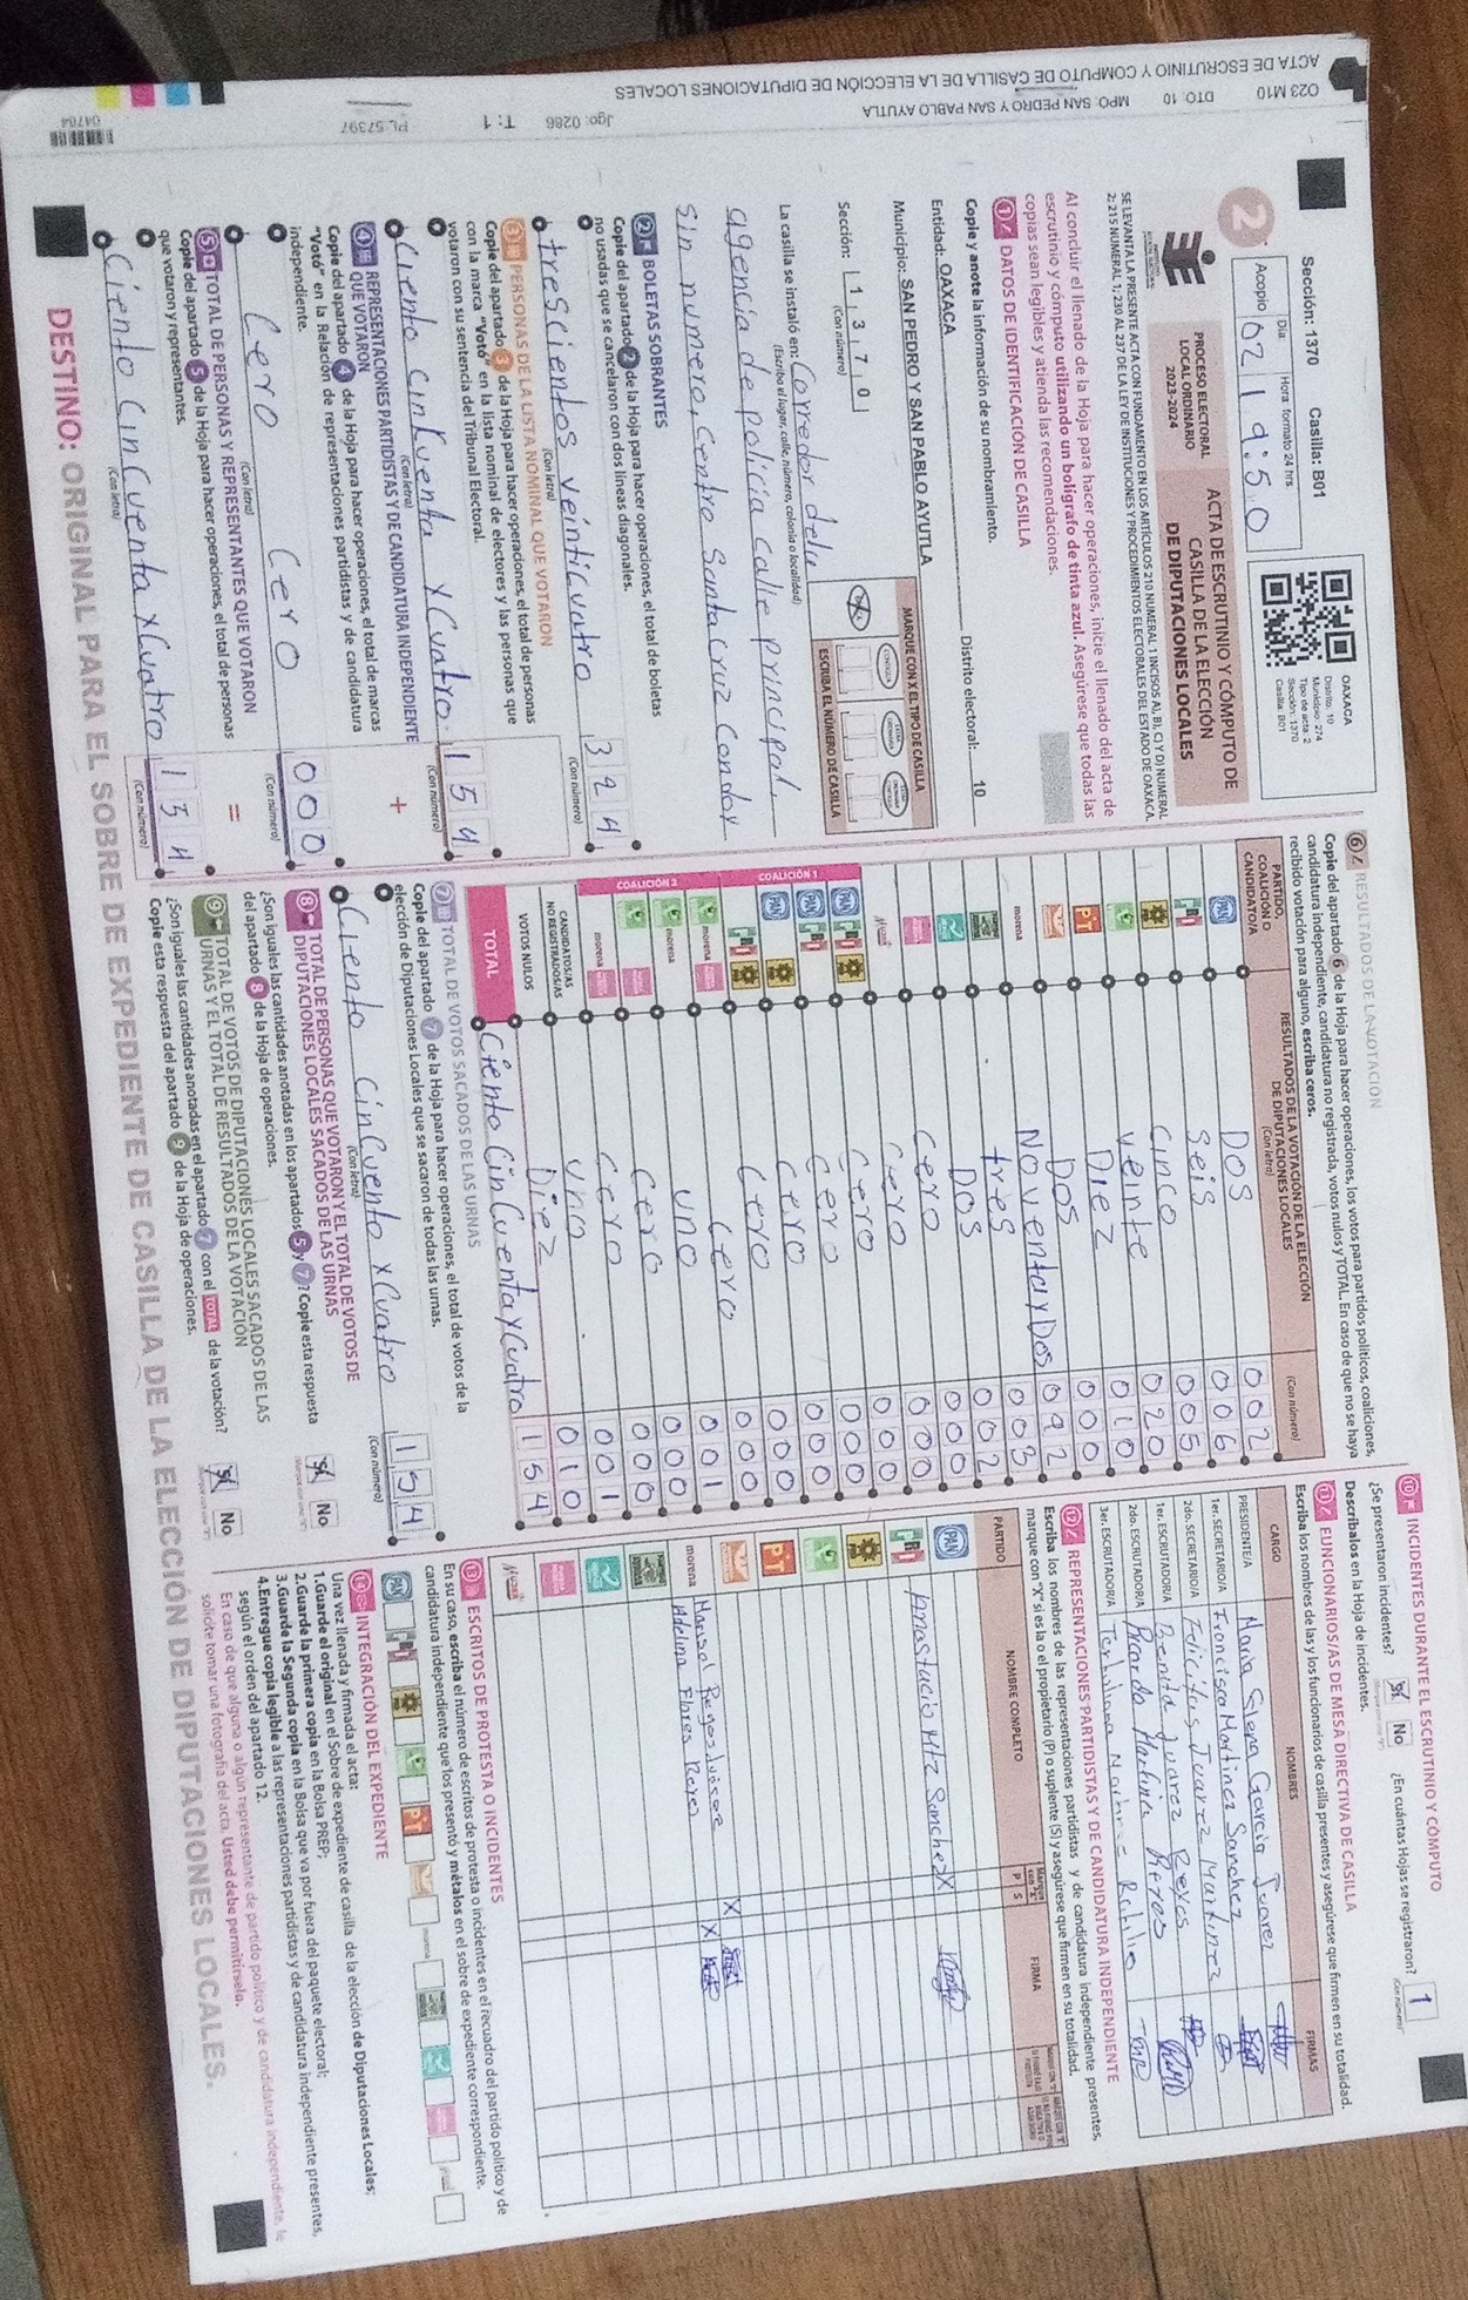 ACTA DE ESCRUTINIO Y CÓMPUTO DE CASILLA DE LA ELECCIÓN DE DIPUTACIONES LOCALES
O23 M10 DTO: 10 MPO: SAN PEDRO Y SAN PABLO AYUTLA Jgo: 0286 T: 1 PL-57397
04784
2
Sección: 1370 Casilla: B01
Día Hora: formato 24 hrs
Acopio 02 19:50
OAXACA
Distrito: 10
Municipio: 274
Tipo de acta: 2
Sección: 1370
Casilla: B01
PROCESO ELECTORAL
LOCAL ORDINARIO
2023-2024
ACTA DE ESCRUTINIO Y CÓMPUTO DE
CASILLA DE LA ELECCIÓN
DE DIPUTACIONES LOCALES
SE LEVANTA LA PRESENTE ACTA CON FUNDAMENTO EN LOS ARTÍCULOS 210 NUMERAL 1 INCISOS A), B), C) Y D) NUMERAL
2; 215 NUMERAL 1; 230 AL 237 DE LA LEY DE INSTITUCIONES Y PROCEDIMIENTOS ELECTORALES DEL ESTADO DE OAXACA.
Al concluir el llenado de la Hoja para hacer operaciones, inicie el llenado del acta de
escrutinio y cómputo utilizando un bolígrafo de tinta azul. Asegúrese que todas las
copias sean legibles y atienda las recomendaciones.
1 DATOS DE IDENTIFICACIÓN DE CASILLA
Copie y anote la información de su nombramiento.
Entidad: OAXACA Distrito electoral: 10
Municipio: SAN PEDRO Y SAN PABLO AYUTLA
Sección: 1 3 7 0
(Con número)
MARQUE CON X EL TIPO DE CASILLA
ESCRIBA EL NÚMERO DE CASILLA
La casilla se instaló en: Corredor dela
(Escriba el lugar, calle, número, colonia o localidad)
agencia de policia calle principal.
sin numero, centro Santa Cruz Condoy
2 BOLETAS SOBRANTES
Copie del apartado 2 de la Hoja para hacer operaciones, el total de boletas
no usadas que se cancelaron con dos líneas diagonales.
trescientos veinticuatro 324
(Con letra) (Con número)
3 PERSONAS DE LA LISTA NOMINAL QUE VOTARON
Copie del apartado 3 de la Hoja para hacer operaciones, el total de personas
con la marca "Votó" en la lista nominal de electores y las personas que
votaron con su sentencia del Tribunal Electoral.
Ciento Cinkuenta y Cuatro 154
(Con letra) (Con número)
+
4 REPRESENTACIONES PARTIDISTAS Y DE CANDIDATURA INDEPENDIENTE
QUE VOTARON
Copie del apartado 4 de la Hoja para hacer operaciones, el total de marcas
"Votó" en la Relación de representaciones partidistas y de candidatura
independiente.
Cero Cero 000
(Con letra) (Con número)
=
5 TOTAL DE PERSONAS Y REPRESENTANTES QUE VOTARON
Copie del apartado 5 de la Hoja para hacer operaciones, el total de personas
que votaron y representantes.
Ciento CinCuenta y Cuatro 154
(Con letra) (Con número)
6 RESULTADOS DE LA VOTACIÓN
Copie del apartado 6 de la Hoja para hacer operaciones, los votos para partidos políticos, coaliciones,
candidatura independiente, candidatura no registrada, votos nulos y TOTAL. En caso de que no se haya
recibido votación para alguno, escriba ceros.
PARTIDO, COALICIÓN O CANDIDATO/A
RESULTADOS DE LA VOTACIÓN DE LA ELECCIÓN DE DIPUTACIONES LOCALES
(Con letra) (Con número)
PAN Dos 002
PRI Seis 006
Cinco 005
Veinte 020
PT Diez 010
Dos 000
morena Noventa y Dos 092
tres 003
Dos 002
Cero 000
Cero 000
COALICIÓN 1
Cero 000
Cero 000
Cero 000
Cero 000
COALICIÓN 2
morena Cero 000
morena uno 001
Cero 000
morena Cero 000
CANDIDATOS/AS NO REGISTRADOS/AS uno 001
VOTOS NULOS Diez 010
TOTAL Ciento CinCuenta y Cuatro 154
7 TOTAL DE VOTOS SACADOS DE LAS URNAS
Copie del apartado 7 de la Hoja para hacer operaciones, el total de votos de la
elección de Diputaciones Locales que se sacaron de todas las urnas.
Ciento CinCuenta y Cuatro 154
(Con letra) (Con número)
8 TOTAL DE PERSONAS QUE VOTARON Y EL TOTAL DE VOTOS DE
DIPUTACIONES LOCALES SACADOS DE LAS URNAS
¿Son iguales las cantidades anotadas en los apartados 5 y 7? Copie esta respuesta
del apartado 8 de la Hoja de operaciones.
Sí No
9 TOTAL DE VOTOS DE DIPUTACIONES LOCALES SACADOS DE LAS
URNAS Y EL TOTAL DE RESULTADOS DE LA VOTACIÓN
¿Son iguales las cantidades anotadas en el apartado 7 con el TOTAL de la votación?
Copie esta respuesta del apartado 9 de la Hoja de operaciones.
Sí No
10 INCIDENTES DURANTE EL ESCRUTINIO Y CÓMPUTO
¿Se presentaron incidentes? Sí No ¿En cuántas Hojas se registraron? 1
Descríbalos en la Hoja de incidentes.
11 FUNCIONARIOS/AS DE MESA DIRECTIVA DE CASILLA
Escriba los nombres de las y los funcionarios de casilla presentes y asegúrese que firmen en su totalidad.
CARGO NOMBRES FIRMAS
PRESIDENTE/A Maria Elena Garcia Juarez
1er. SECRETARIO/A Francisca Martinez Sanchez
2do. SECRETARIO/A Felicitas Juarez Martinez
1er. ESCRUTADOR/A Benita Juarez Reyes
2do. ESCRUTADOR/A Ricardo Reyes
3er. ESCRUTADOR/A
12 REPRESENTACIONES PARTIDISTAS Y DE CANDIDATURA INDEPENDIENTE
Escriba los nombres de las representaciones partidistas y de candidatura independiente presentes,
marque con "X" si es la o el propietario (P) o suplente (S) y asegúrese que firmen en su totalidad.
PARTIDO NOMBRE COMPLETO P S FIRMA
PAN
PRI Mtz Sanchez X
PT
Marisol X
morena Adelina Flores Perez X
13 ESCRITOS DE PROTESTA O INCIDENTES
En su caso, escriba el número de escritos de protesta o incidentes en el recuadro del partido político y de
candidatura independiente que los presentó y métalos en el sobre de expediente correspondiente.
14 INTEGRACIÓN DEL EXPEDIENTE
Una vez llenada y firmada el acta:
1.Guarde el original en el Sobre de expediente de casilla de la elección de Diputaciones Locales;
2.Guarde la primera copia en la Bolsa PREP;
3.Guarde la Segunda copia en la Bolsa que va por fuera del paquete electoral;
4.Entregue copia legible a las representaciones partidistas y de candidatura independiente presentes,
según el orden del apartado 12.
En caso de que alguna o algún representante de partido político y de candidatura independiente, le
solicite tomar una fotografía del acta. Usted debe permitírselo.
DESTINO: ORIGINAL PARA EL SOBRE DE EXPEDIENTE DE CASILLA DE LA ELECCIÓN DE DIPUTACIONES LOCALES.